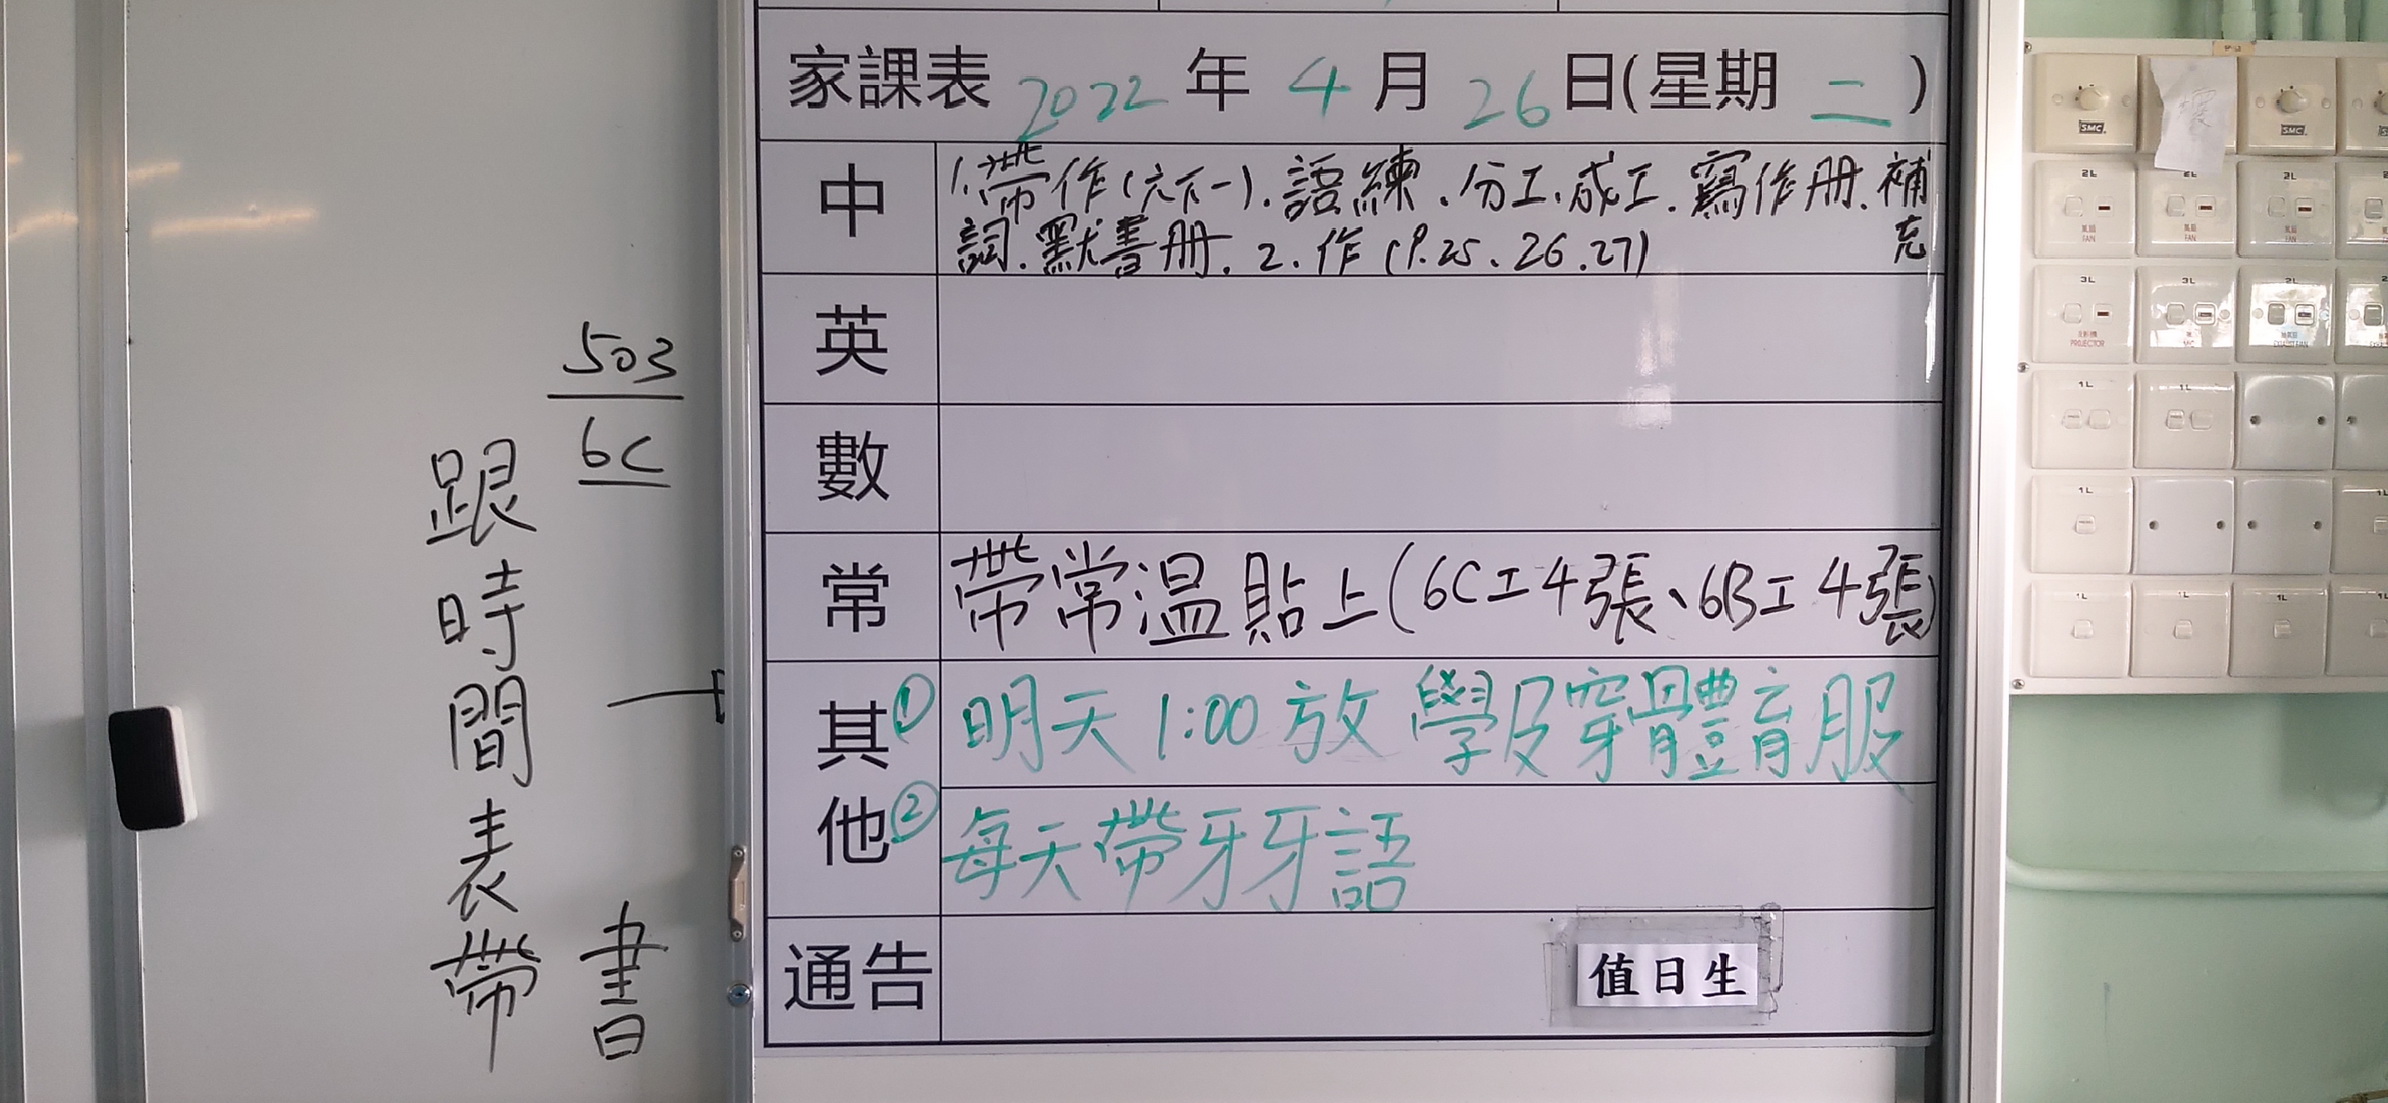 家課表 2022 年 4 月 26 日(星期 二 )
中
1.帶作(六下一)、語練、分工、成工、寫作册、補充
詞、默書册. 2. 作 (P.25、26、27)
英
數
常
帶常溫貼上(6C工4張、6B工4張)
其他
① 明天 1:00 放學及穿體育服
② 每天帶牙牙語
通告
值日生
503
6C
跟時間表帶書
SMC
SMC
2L
2L
2L
風扇
FAN
風扇
FAN
風扇
FAN
3L
3L
2L
PROJECTOR
MIC
EXHAUST FAN
1L
1L
1L
1L
1L
1L
1L